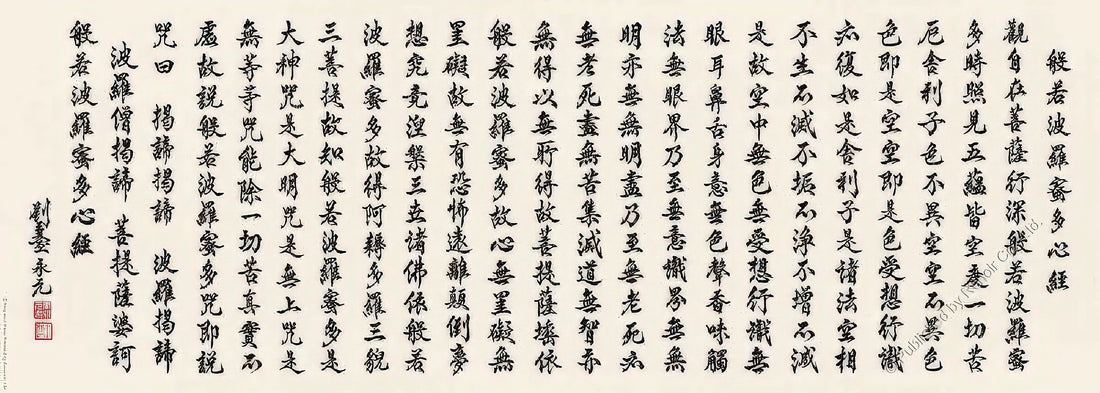 般若波羅蜜多心經
觀自在菩薩行深般若波羅蜜
多時照見五蘊皆空度一切苦
厄舍利子色不異空空不異色
色即是空空即是色受想行識
亦復如是舍利子是諸法空相
不生不滅不垢不淨不增不減
是故空中無色無受想行識無
眼耳鼻舌身意無色聲香味觸
法無眼界乃至無意識界無無
明亦無無明盡乃至無老死亦
無老死盡無苦集滅道無智亦
無得以無所得故菩提薩埵依
般若波羅蜜多故心無罣礙無
罣礙故無有恐怖遠離顛倒夢
想究竟涅槃三世諸佛依般若
波羅蜜多故得阿耨多羅三藐
三菩提故知般若波羅蜜多是
大神咒是大明咒是無上咒是
無等等咒能除一切苦真實不
虛故說般若波羅蜜多咒即說
咒曰 揭諦揭諦 波羅揭諦
波羅僧揭諦 菩提薩婆訶
般若波羅蜜多心經
劉永元
© Published by